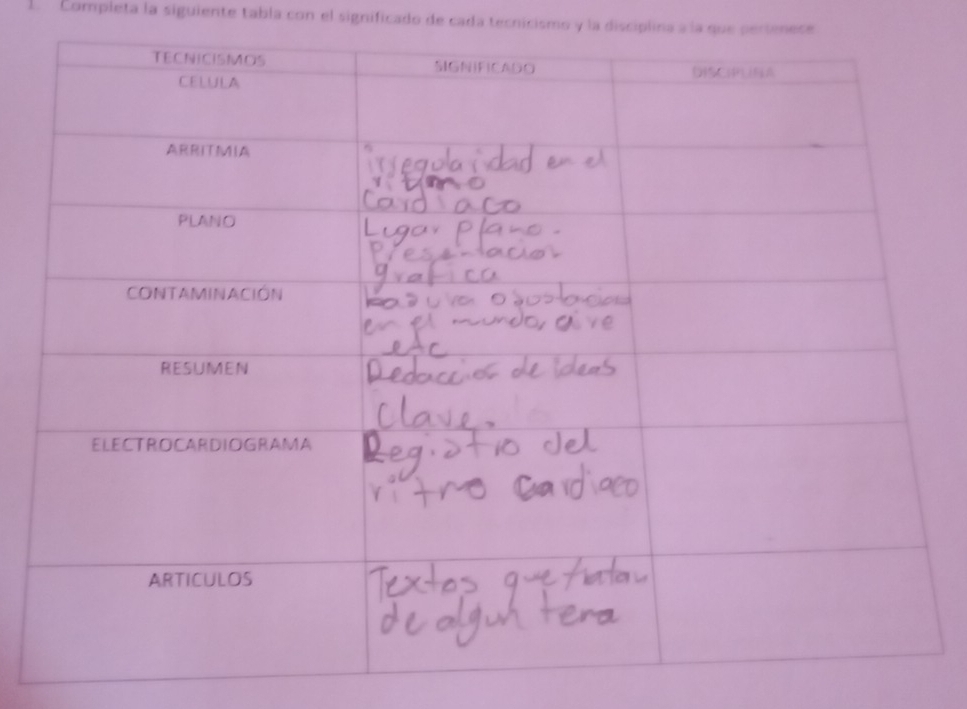 1. Completa la siguiente tabla con el significado de cada tecnicismo y la disciplina a la que pertenece
TECNICISMOS SIGNIFICADO DISCIPLINA
CELULA
ARRITMIA
irregularidad en el
ritmo
cardiaco
PLANO
Lugar plano.
Presentacion
grafica
CONTAMINACIÓN
basura o
en el mundo, aire
etc
RESUMEN
Redaccion de ideas
clave.
ELECTROCARDIOGRAMA
Registro del
ritmo cardiaco
ARTICULOS
Textos que tratan
de algun tema